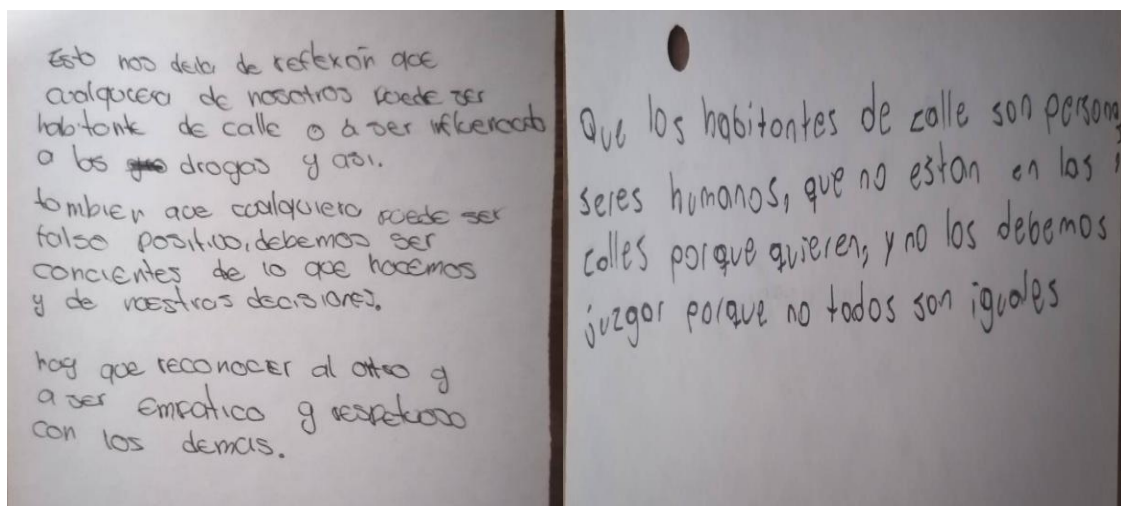 Esto nos deba de reflexón que
cualquiera de nosotros puede ser
habitante de calle o a ser influenciado
a las drogas y asi.
tambien que cualquiera puede ser
falso positivo, debemos ser
concientes de lo que hacemos
y de nuestras decisiones.
hay que reconocer al otro y
a ser empatico y respetuoso
con los demas.
Que los habitantes de calle son person
seres humanos, que no estan en las
calles porque quieren, y no los debemos
juzgar porque no todos son iguales